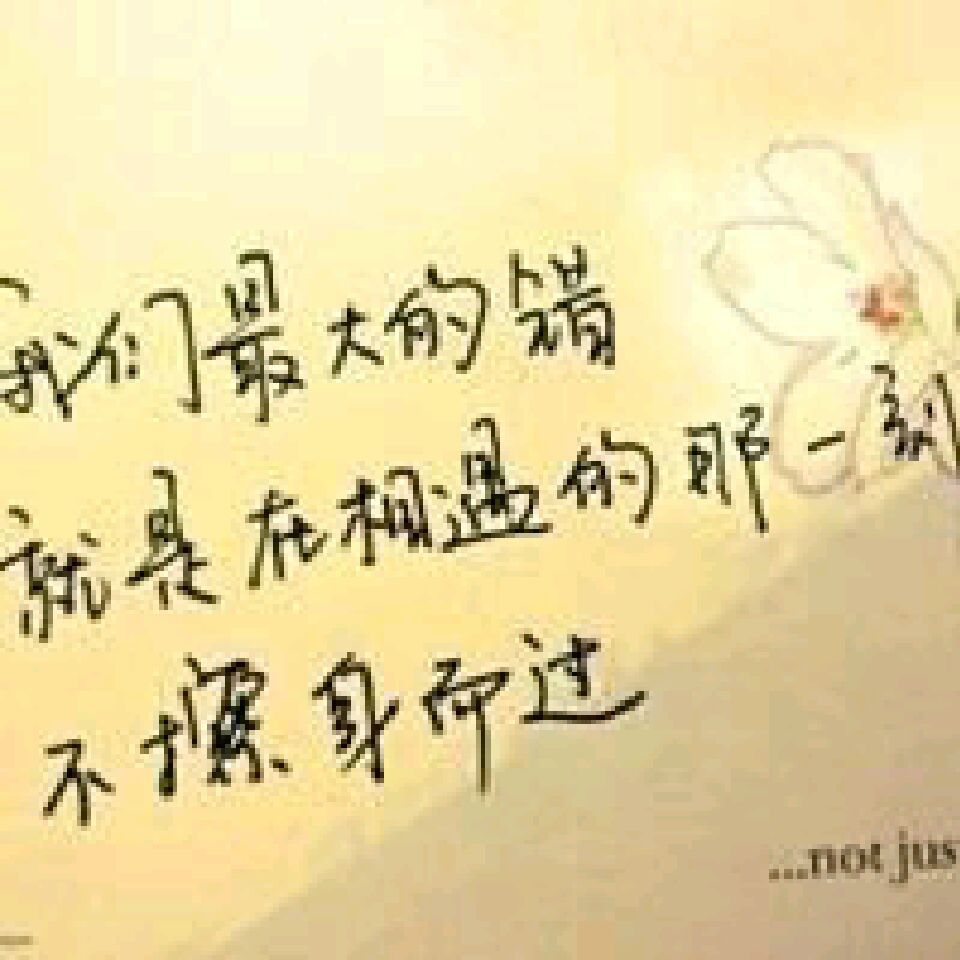 我们最大的错
就是在相遇的那一刻
不擦身而过
...not jus